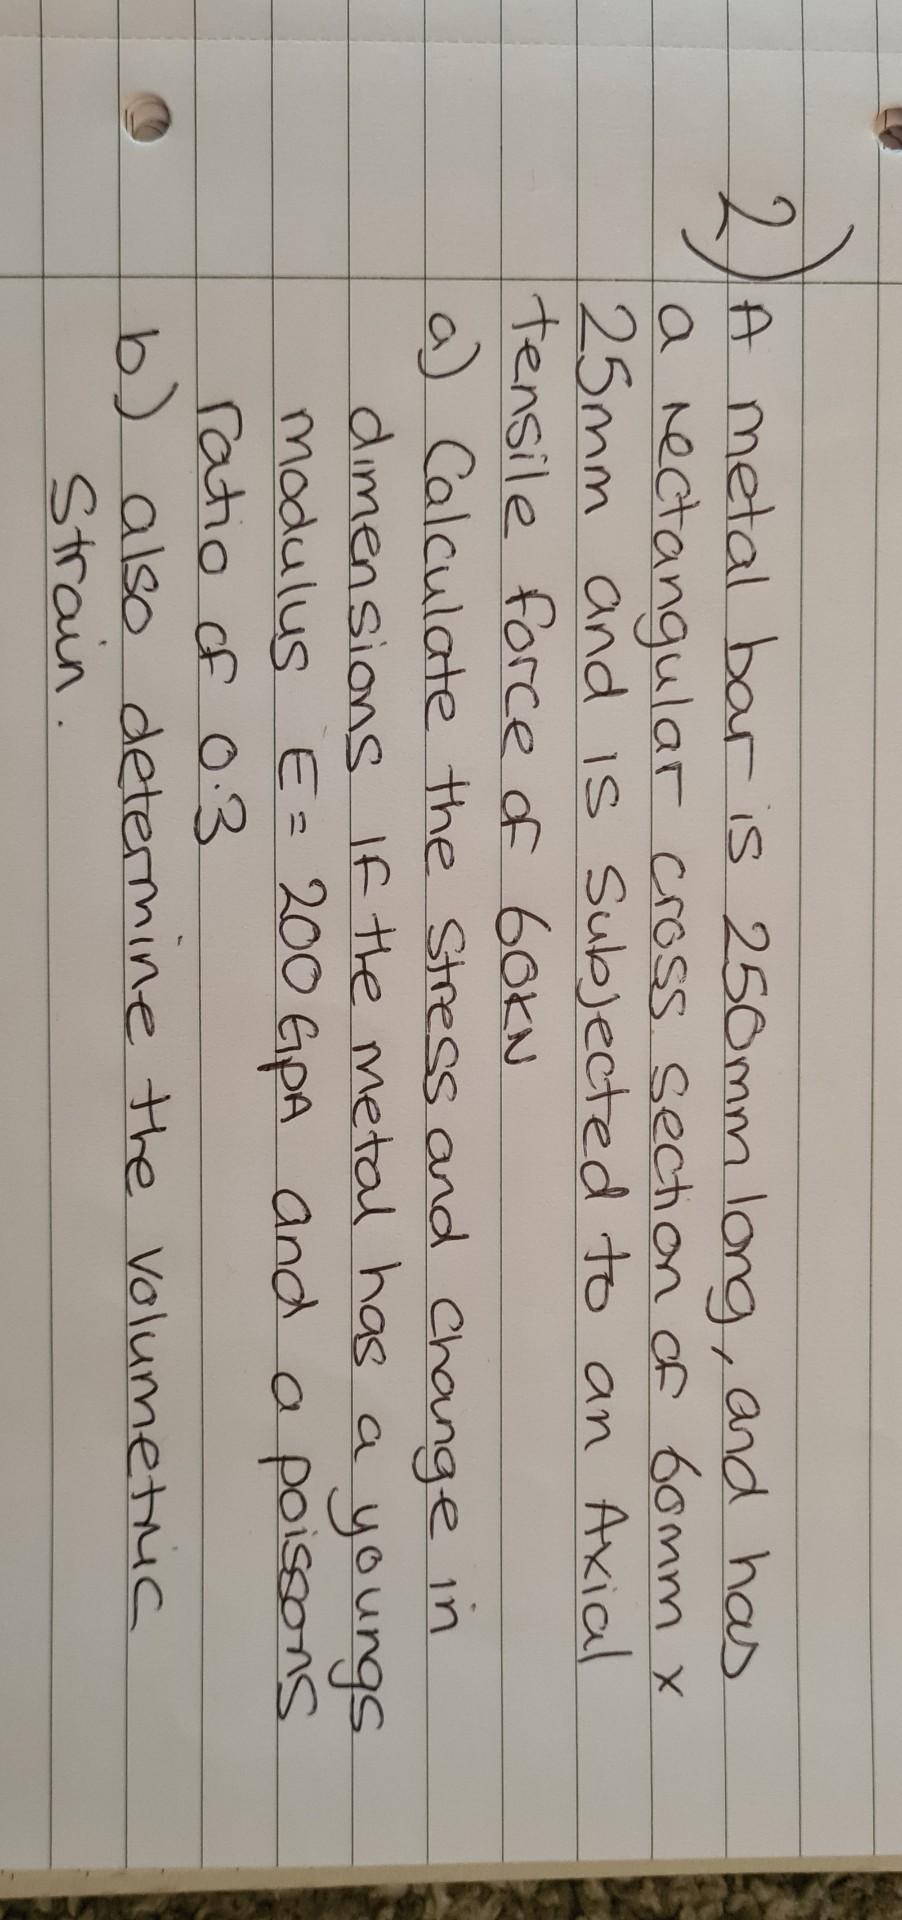 2) A metal bar is 250mm long, and has
a rectangular cross section of 60mm x
25mm and is subjected to an Axial
tensile force of 60KN
a) Calculate the stress and change in
dimensions if the metal has a youngs
modulus E = 200 GPA and a poissons
ratio of 0.3
b) also determine the volumetric
strain.